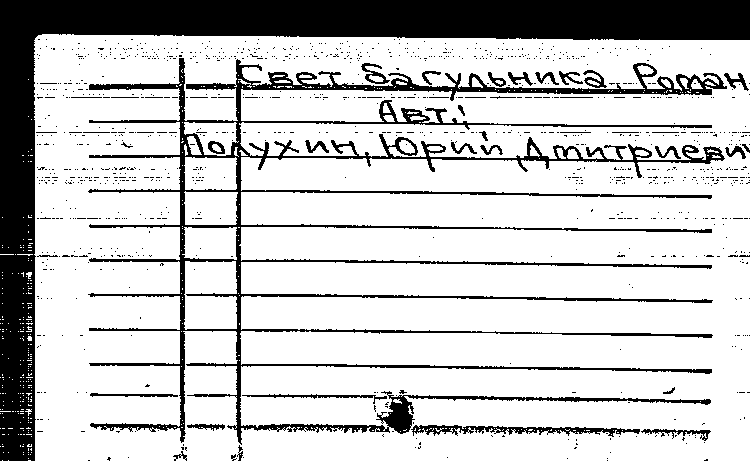 Свет багульника. Роман
Авт.:
Полухин, Юрий Дмитриевич